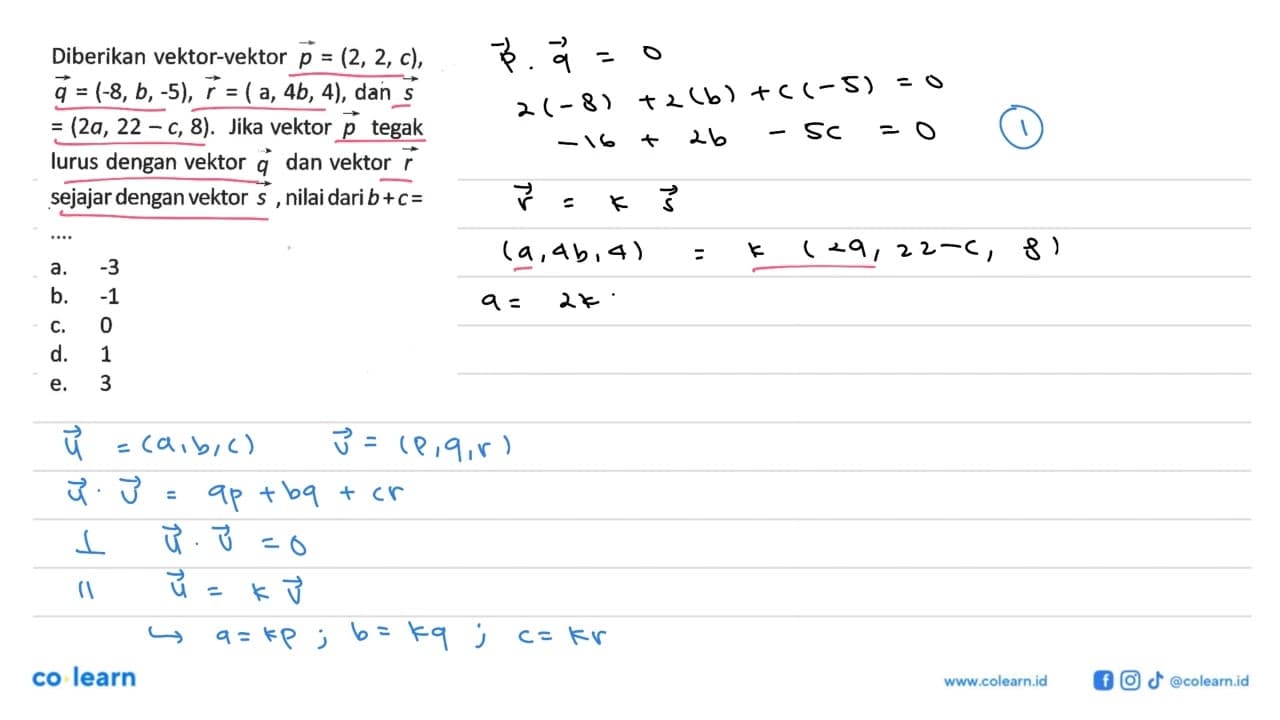 Diberikan vektor-vektor p⃗ = (2, 2, c),
q⃗ = (-8, b, -5), r⃗ = ( a, 4b, 4), dan s⃗
= (2a, 22 – c, 8). Jika vektor p⃗ tegak
lurus dengan vektor q⃗ dan vektor r⃗
sejajar dengan vektor s⃗ , nilai dari b + c =
....
a. -3
b. -1
c. 0
d. 1
e. 3
p⃗ . q⃗ = 0
2(-8) + 2(b) + c(-5) = 0
-16 + 2b - 5c = 0 ①
r⃗ = k s⃗
(a, 4b, 4) = k (2a, 22-c, 8)
a = 2k
u⃗ = (a, b, c) v⃗ = (p, q, r)
u⃗ . v⃗ = ap + bq + cr
⊥ u⃗ . v⃗ = 0
∥ u⃗ = k v⃗
↪ a = kp ; b = kq ; c = kr
co learn
www.colearn.id
@colearn.id